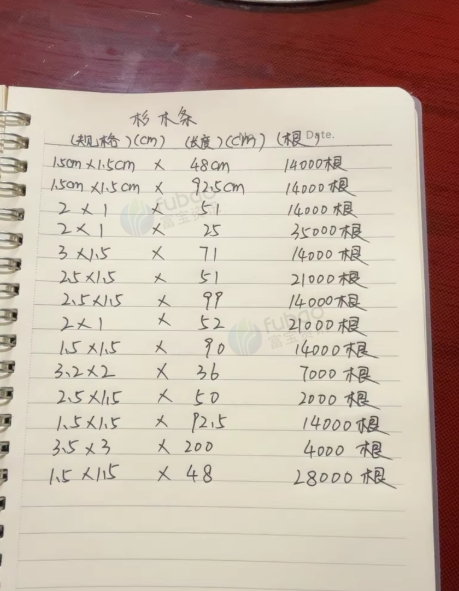 杉木条
(规格)(cm) (长度)(cm) (根) Date.
1.5cm×1.5cm × 48cm 14000根
1.5cm×1.5cm × 92.5cm 14000根
2×1 × 51 14000根
2×1 × 25 35000根
3×1.5 × 71 14000根
2.5×1.5 × 51 21000根
2.5×1.5 × 99 14000根
2×1 × 52 21000根
1.5×1.5 × 90 14000根
3.2×2 × 36 7000根
2.5×1.5 × 50 2000根
1.5×1.5 × 92.5 14000根
3.5×3 × 200 4000根
1.5×1.5 × 48 28000根
fubao
fubao